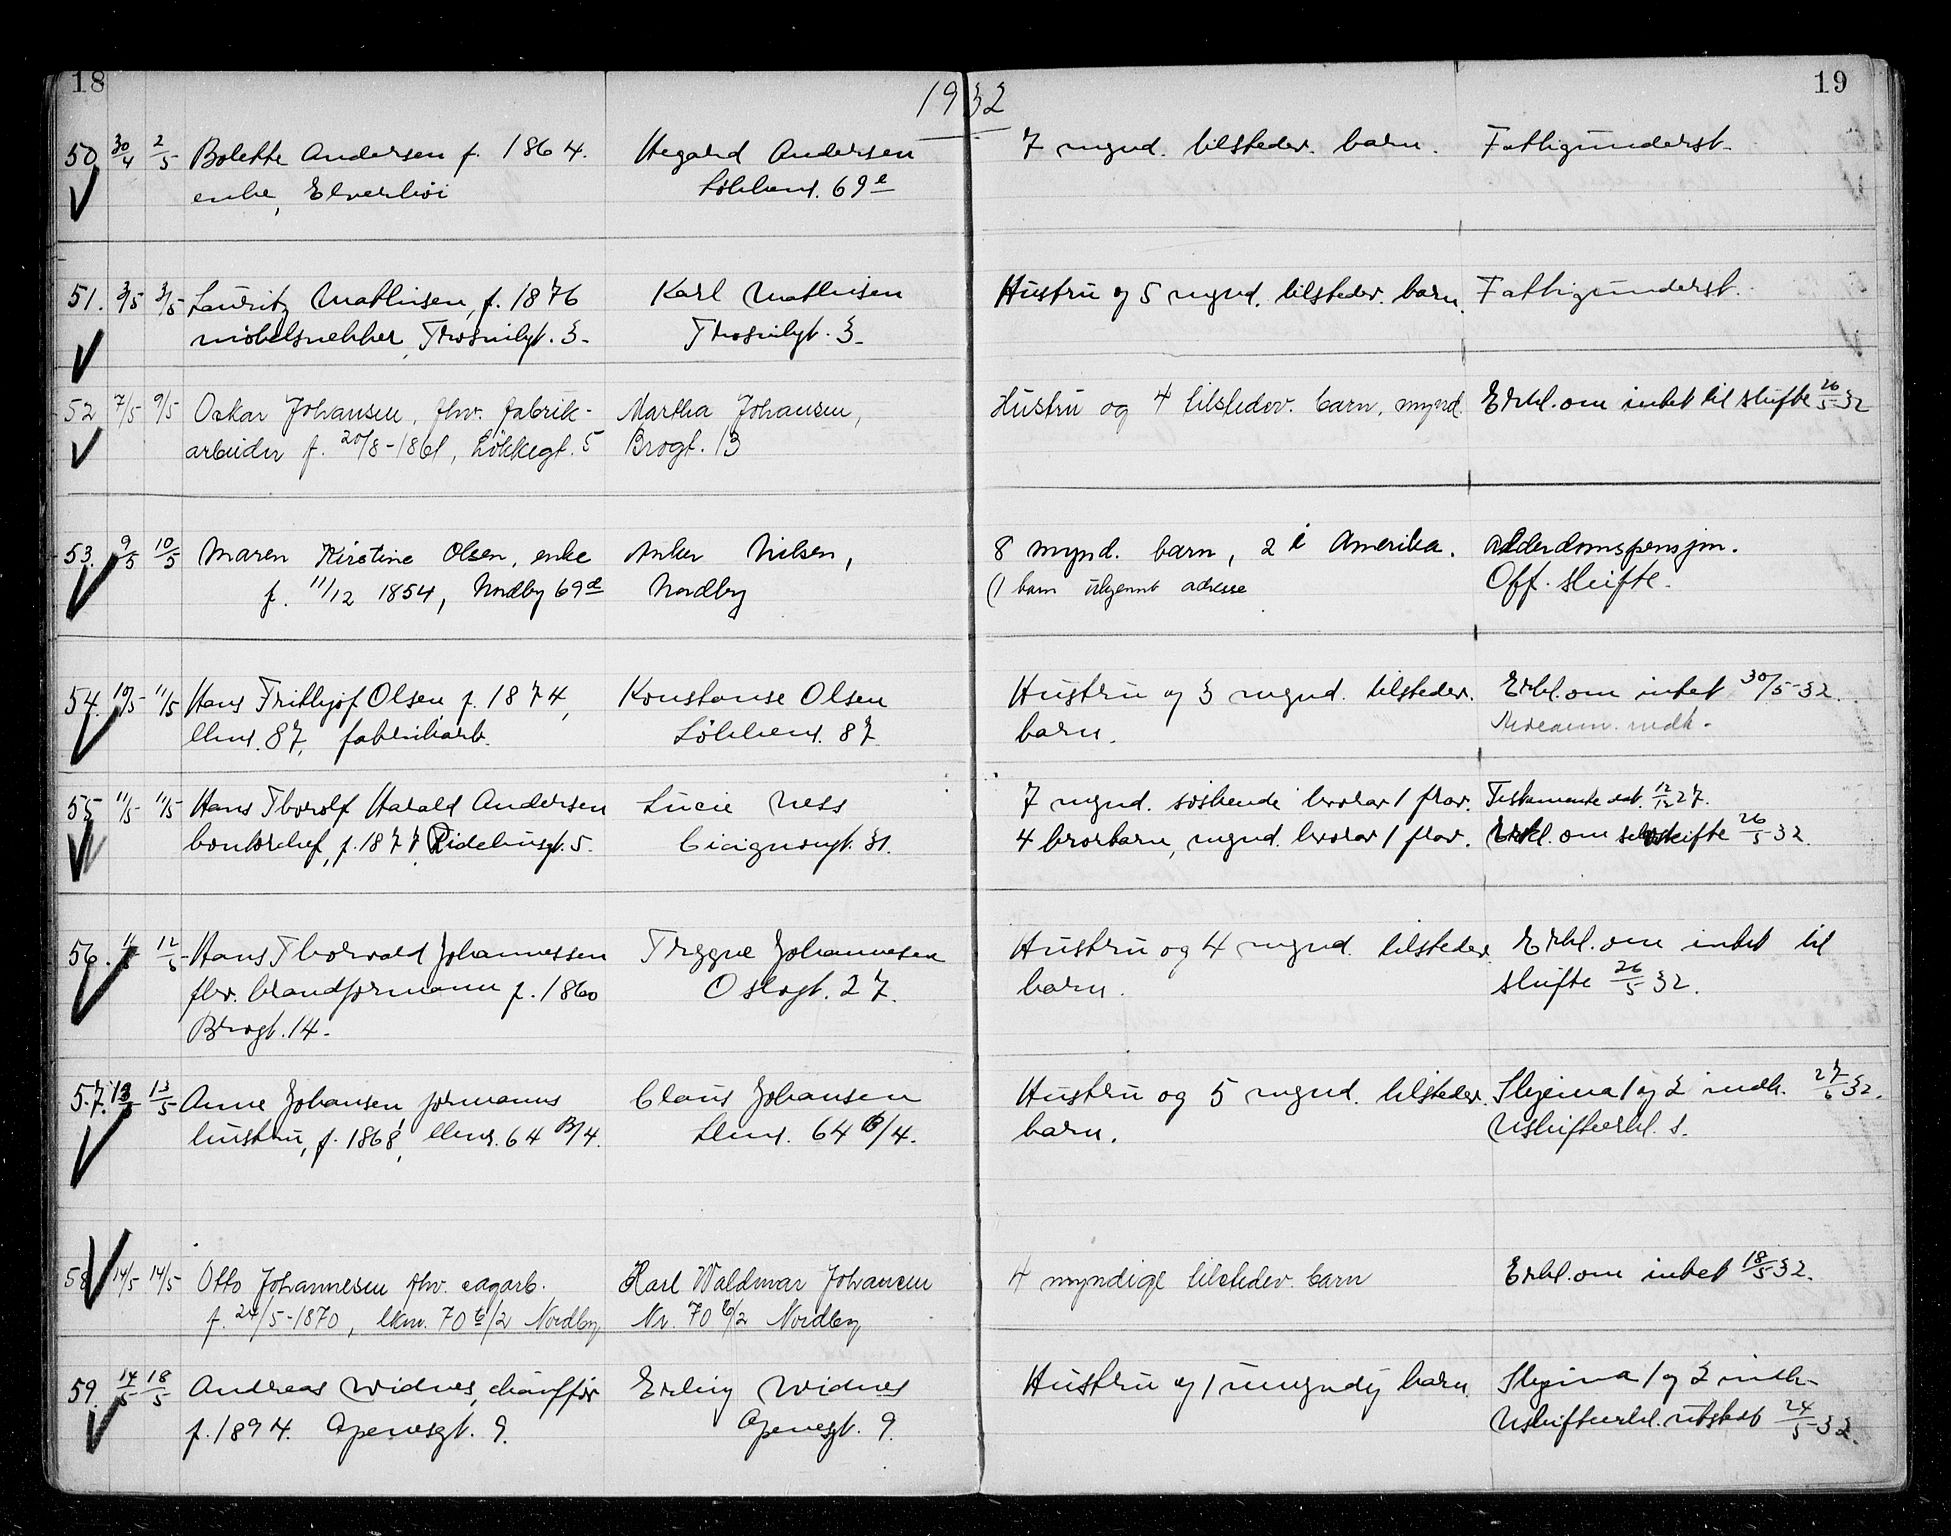 18
1932
19
50 30/4 2/5 Bolette Andersen f. 1864. Hegard Andersen 7 mynd. tilstedev. barn. Fattigunderst.
enke, Elverhöi Løkkens. 69e
51. 3/5 3/5 Lauritz Mathisen, f. 1876 Karl Mathisen Hustru og 5 mynd. tilstedev. barn. Fattigunderst.
møbelsnekker, Trosvikgt. 3. Trosvikgt. 3.
52 7/5 9/5 Oskar Johansen, fhv. fabrik- Martha Johansen, Hustru og 4 tilstedev. barn, mynd. Erkl. om intet til skifte 26/5-32
arbeider f. 20/8-1861, Løkkegt. 5 Brogt. 13
53. 9/5 10/5 Maren Kirstine Olsen, enke Anker Nilsen, 8 mynd. barn, 2 i Amerika. Alderdomspensjon.
f. 11/12 1854, Nordby 69d Nordby (1 barn ukjennt adresse Off. skifte.
54. 10/5 11/5 Hans Frithjof Olsen f. 1874, Konstanse Olsen Hustru og 3 mynd. tilstedev. Erkl. om intet 30/5-32.
lkns. 87, fabrikarb. Løkkens. 87 barn. indk.
55 11/5 11/5 Hans Thorolf Harald Andersen Lucie Ness 7 mynd. søskende hvorav 1 frav. Testamente dat. 12/12 27.
kontorchef, f. 1877 Ridehusgt. 5. Cicignongt. 31. 4 brorbarn, mynd. hvorav 1 frav. Erkl. om selvskifte 26/5 32.
56. 11/5 12/5 Hans Thorvald Johannessen Trygve Johannesen Hustru og 4 mynd. tilstedev. Erkl. om intet til
fhv. brandformann f. 1860 Oslogt. 27. barn. skifte 26/5 32.
Brogt. 14.
57. 13/5 13/5 Anne Johansen, formanns Claus Johansen Hustru og 5 mynd. tilstedev. Skjema 1 og 2 indk. 27/6 32.
hustru, f. 1868, lkns. 64 B/4. Lkns. 64 B/4. barn. Uskifteerkl. s.
58 14/5 14/5 Otto Johannesen fhv. sagarb. Karl Waldmar Johansen 4 myndige tilstedev. barn Erkl. om intet 18/5 32.
f. 24/5-1870, lkn. 70 b/2 Nordby Nr. 70 b/2 Nordby
59. 14/5 18/5 Andreas Widnes, chauffør Erling Widnes Hustru og 1 umyndig barn. Skjema 1 og 2 indk.
f. 1894. Apenesgt. 9. Apenesgt. 9. Uskifteerkl. utstedt 24/5-32.